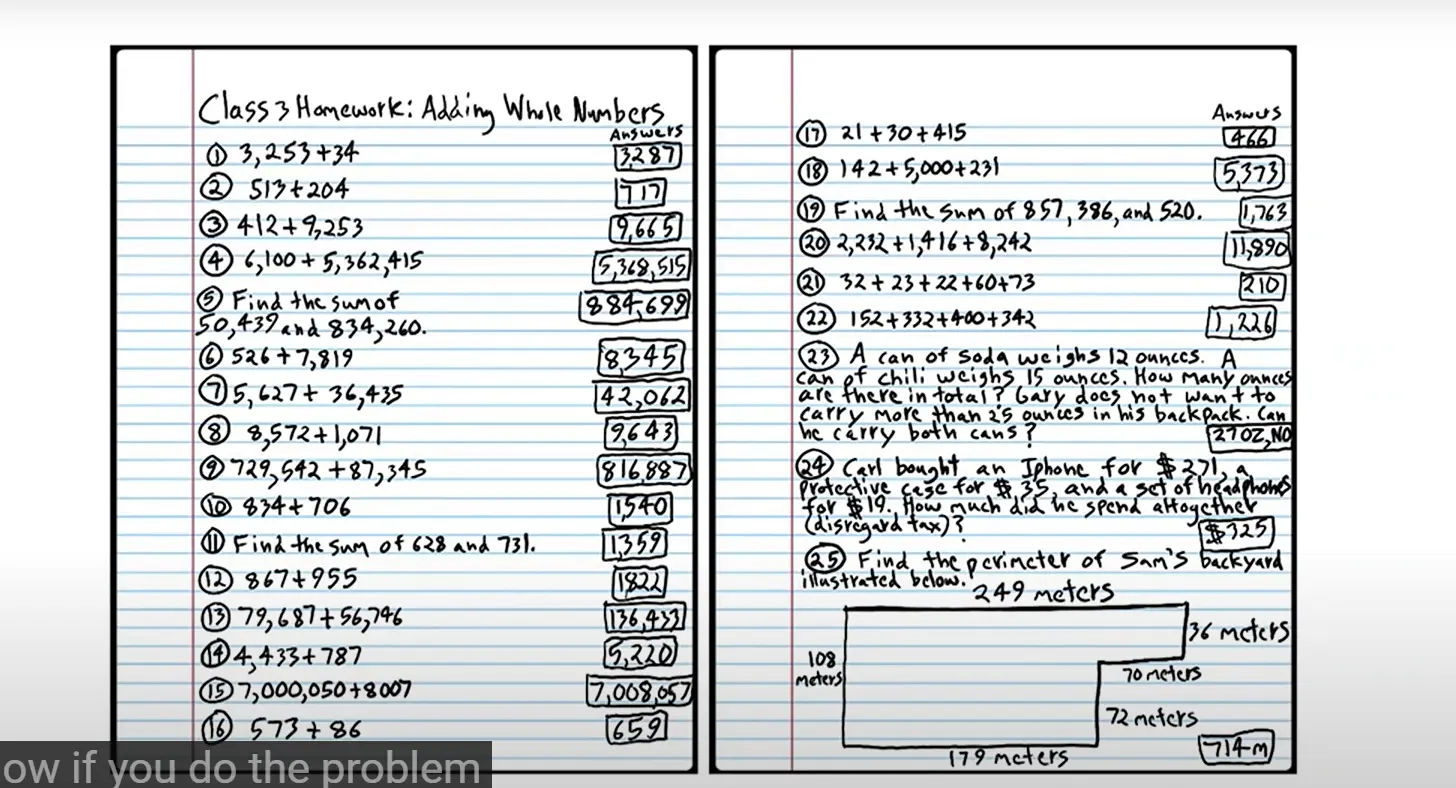 Class 3 Homework: Adding Whole Numbers
Answers
① 3,253+34 3287
② 513+204 717
③ 412+9,253 9,665
④ 6,100+5,362,415 5,368,515
⑤ Find the sum of 884,699
50,439 and 834,260.
⑥ 526+7,819 8,345
⑦ 5,627+ 36,435 42,062
⑧ 8,572+1,071 9,643
⑨ 729,542 +87,345 816,887
⑩ 834+706 1,540
⑪ Find the sum of 628 and 731. 1,359
⑫ 867+955 1822
⑬ 79,687+56,746 136,433
⑭ 4,433+787 5,220
⑮ 7,000,050+8007 7,008,057
⑯ 573+86 659
Answers
⑰ 21+30+415 466
⑱ 142+5,000+231 5,373
⑲ Find the sum of 857, 386, and 520. 1,763
⑳ 2,232+1,416+8,242 11,890
㉑ 32+23+22+60+73 210
㉒ 152+332+400+342 1,226
㉓ A can of soda weighs 12 ounces. A
can of chili weighs 15 ounces. How many ounces
are there in total? Gary does not want to
carry more than 25 ounces in his backpack. Can
he carry both cans? 27OZ, NO
㉔ Carl bought an Iphone for $271, a
protective case for $35, and a set of headphones
for $19. How much did he spend altogether
(disregard tax)? $325
㉕ Find the perimeter of Sam's backyard
illustrated below.
249 meters
36 meters
108
meters
70 meters
72 meters
714m
179 meters
ow if you do the problem